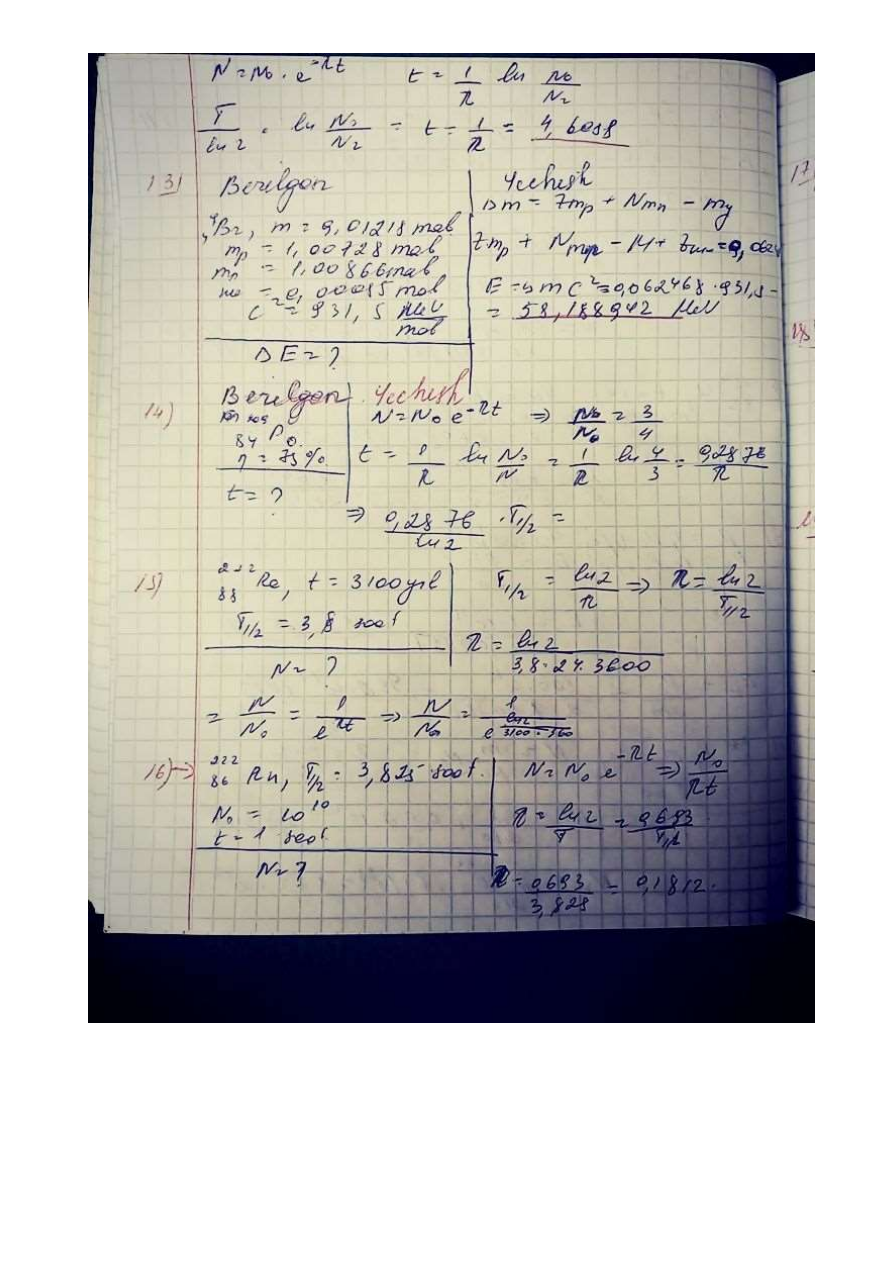 N = N₀ · e^-λt    t = 1/λ ln N₀/N₂
T/ln2 · ln N₀/N₂ = t = 1/λ =
13)
Berilgan
Br, m = 9,01218 mab
mp = 1,00728 mab
mn = 1,00866 mab
c² = 931,5 MeV/mab
ΔE = ?
Yechish
Δm = Zmp + Nmn - my
E = Δmc² = 0,062468 · 931,5 =
= 58,188942 MeV
14)
Berilgan
84 Po
η = 75%
t = ?
Yechish
N = N₀ e^-λt ⇒ N₀/N₀ = 3/4
t = 1/λ ln N₀/N = 1/λ ln 4/3 = 0,2876/λ
⇒ 0,2876/ln2 · T1/2 =
15)
222 88 Ra, t = 3100 yil
T1/2 = 3,8 soat
N = ?
T1/2 = ln2/λ ⇒ λ = ln2/T1/2
λ = ln2/3,8·24·3600
= N/N₀ = 1/e^λt ⇒ N/N₀ =
16) →
222 86 Rn, T1/2 = 3,825 soat.
N₀ = 10^10
t = 1 soat
N = ?
N = N₀ e^-λt ⇒ N₀/λt
λ = ln2/T = 0,693/T1/2
λ = 0,693/3,825 = 0,1812.
17)